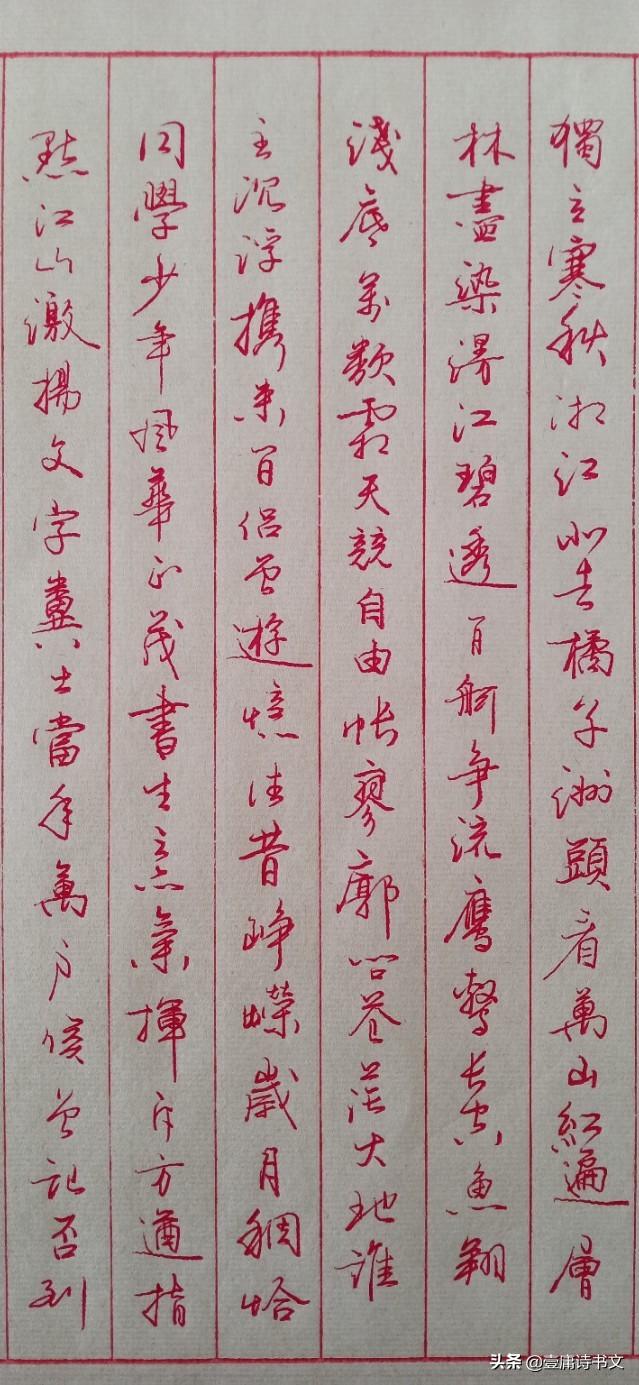 獨立寒秋湘江北去橘子洲頭看萬山紅遍層
林盡染漫江碧透百舸争流鷹擊長空魚翔
淺底萬類霜天競自由悵寥廓問蒼茫大地誰
主沉浮攜來百侣曾遊憶往昔崢嶸歲月稠恰
同學少年風華正茂書生意氣揮斥方遒指
點江山激揚文字糞土當年萬户侯曾記否到
头条 @壹庸诗书文